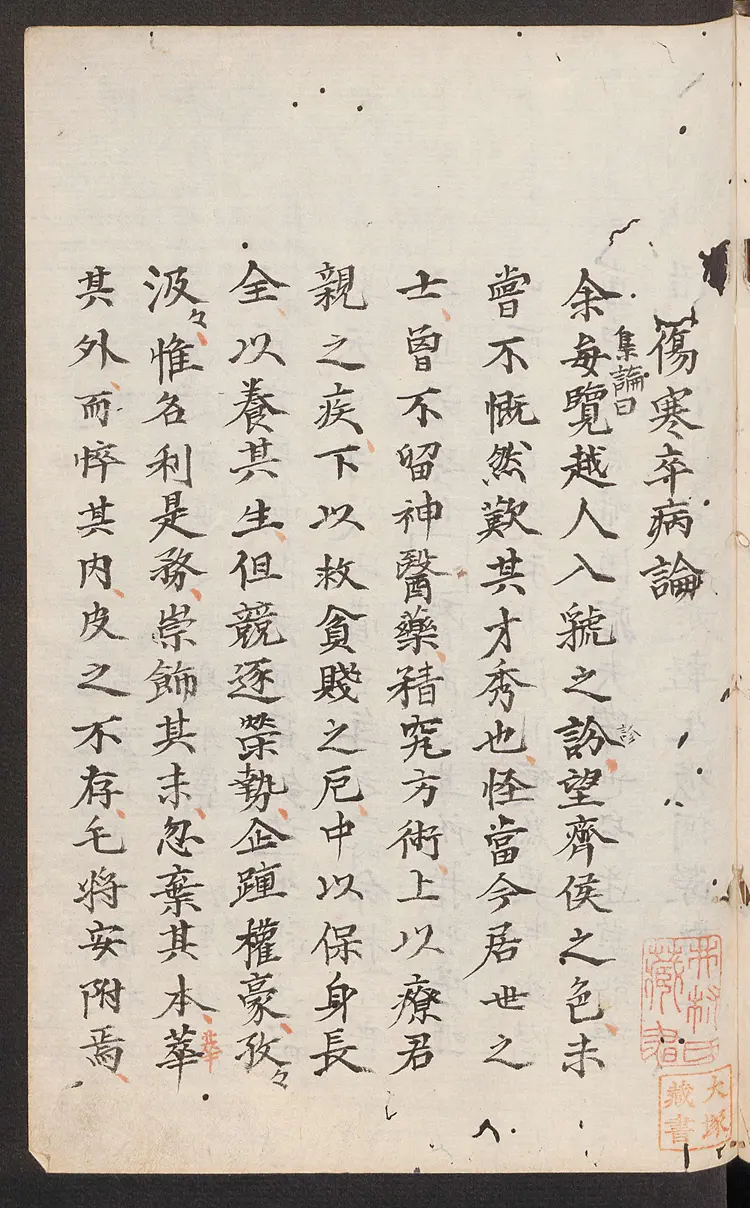 傷寒卒病論
集論曰
余每覽越人入虢之訡望齊侯之色未
診
嘗不慨然歎其才秀也怪當今居世之
士曾不留神醫藥精究方術上以療君
親之疾下以救貧賤之厄中以保身長
全以養其生但競逐榮勢企踵權豪孜々
汲々惟名利是務崇飾其末忽棄其本華
華
其外而悴其内皮之不存毛將安附焉
大塚
藏書